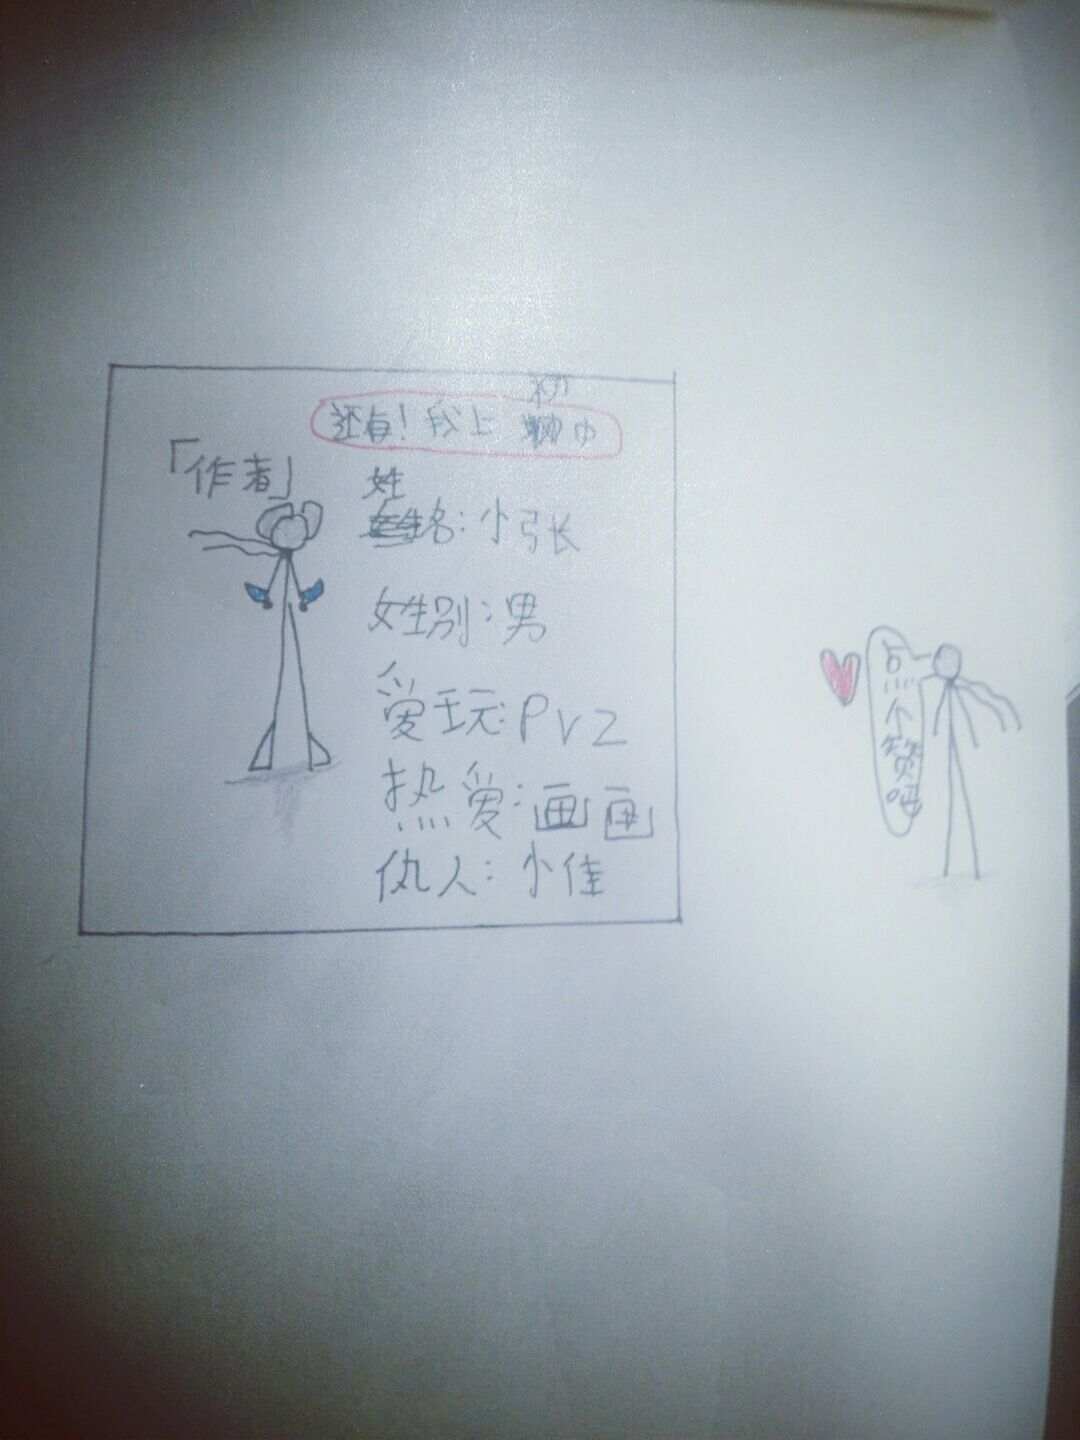 还有！我上初中
「作者」
姓名：小张
姓别：男
爱玩：PVZ
热爱：画画
仇人：小佳
点个赞吧